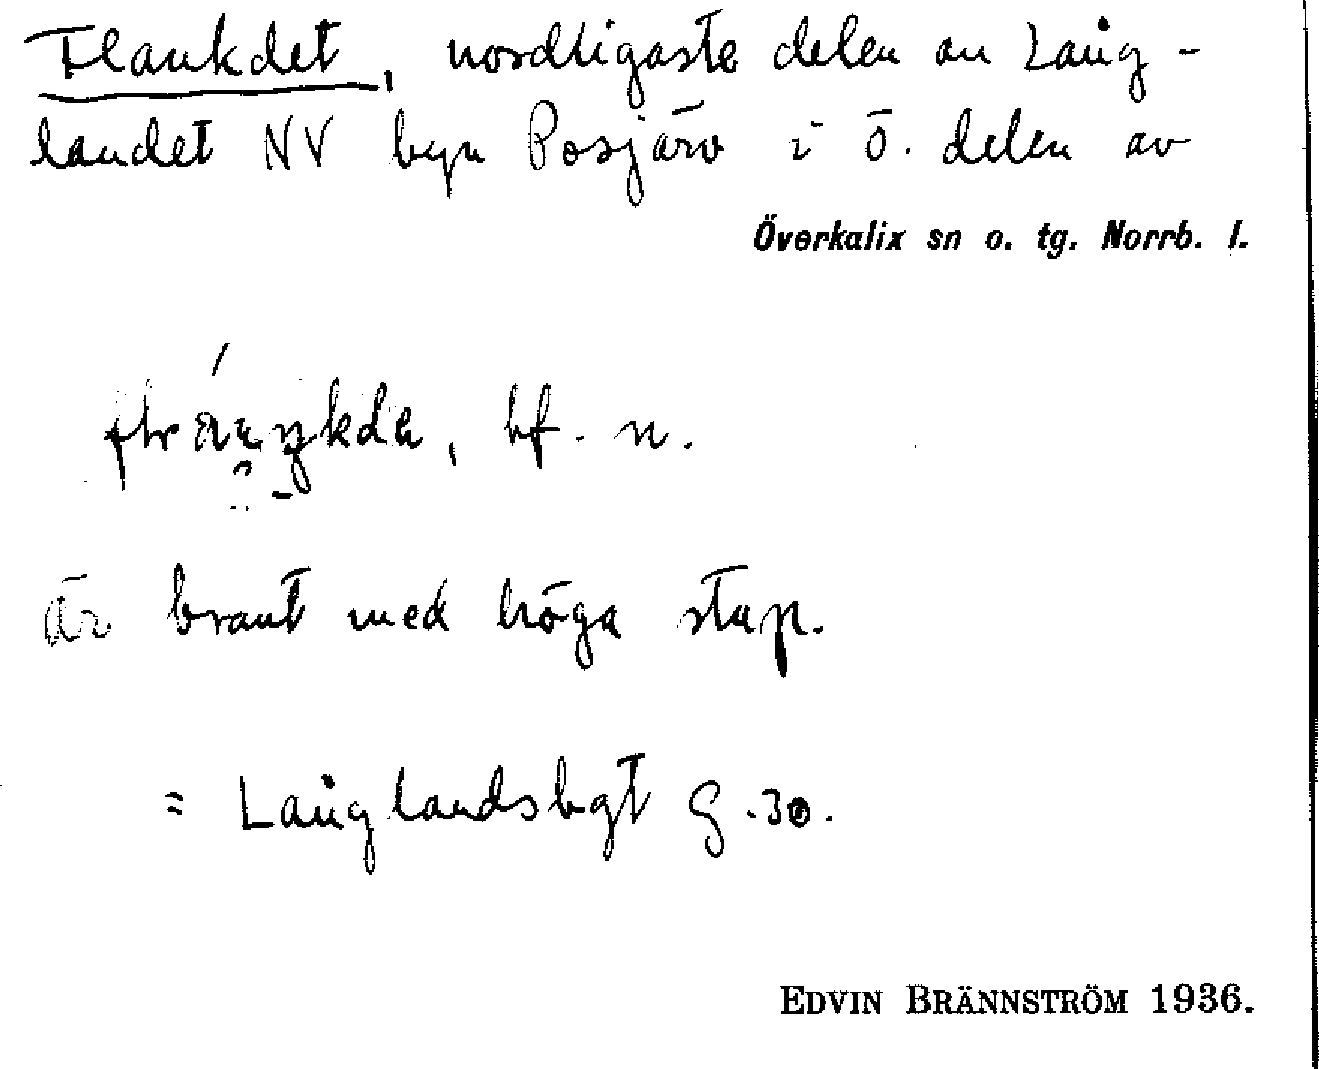 Flankdet, nordligaste delen av Lång-
landet NV byn Posjärv i ö. delen av
Överkalix sn o. tg. Norrb. l.
bf. n.
är brant med höga stup.
= Långlandsbgt G.30.
EDVIN BRÄNNSTRÖM 1936.